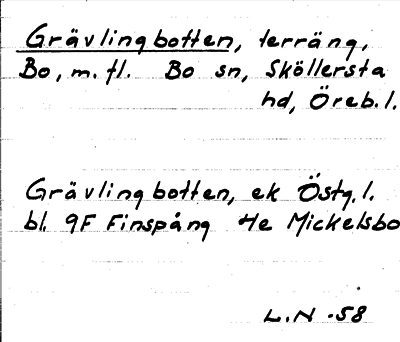 Grävlingbotten, terräng,
Bo, m. fl. Bo sn, Sköllersta
hd, Öreb. l.
Grävlingbotten, ek Östg. l.
bl. 9F Finspång 4e Mickelsbo
L.N -58